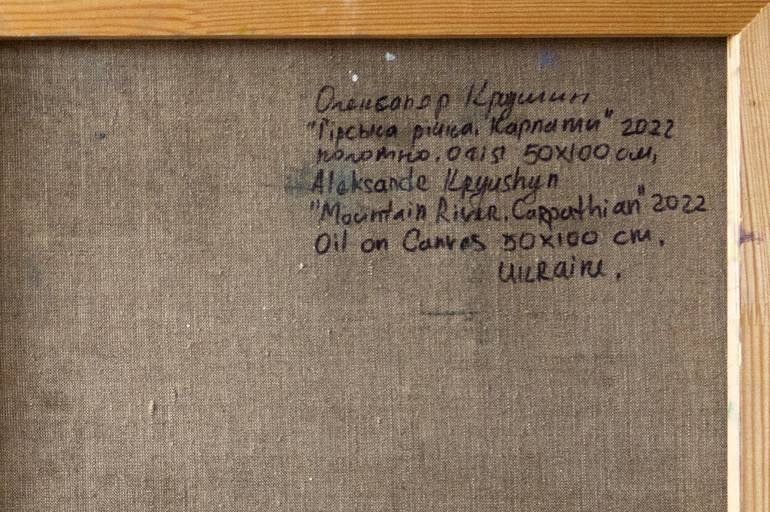 Олександр Крушин
"Гірська річка. Карпати" 2022
полотно. олія 50x100 см,
Aleksande Kryushyn
"Mountain River. Carpathian" 2022
Oil on Canves 50x100 cm.
Ukraine.